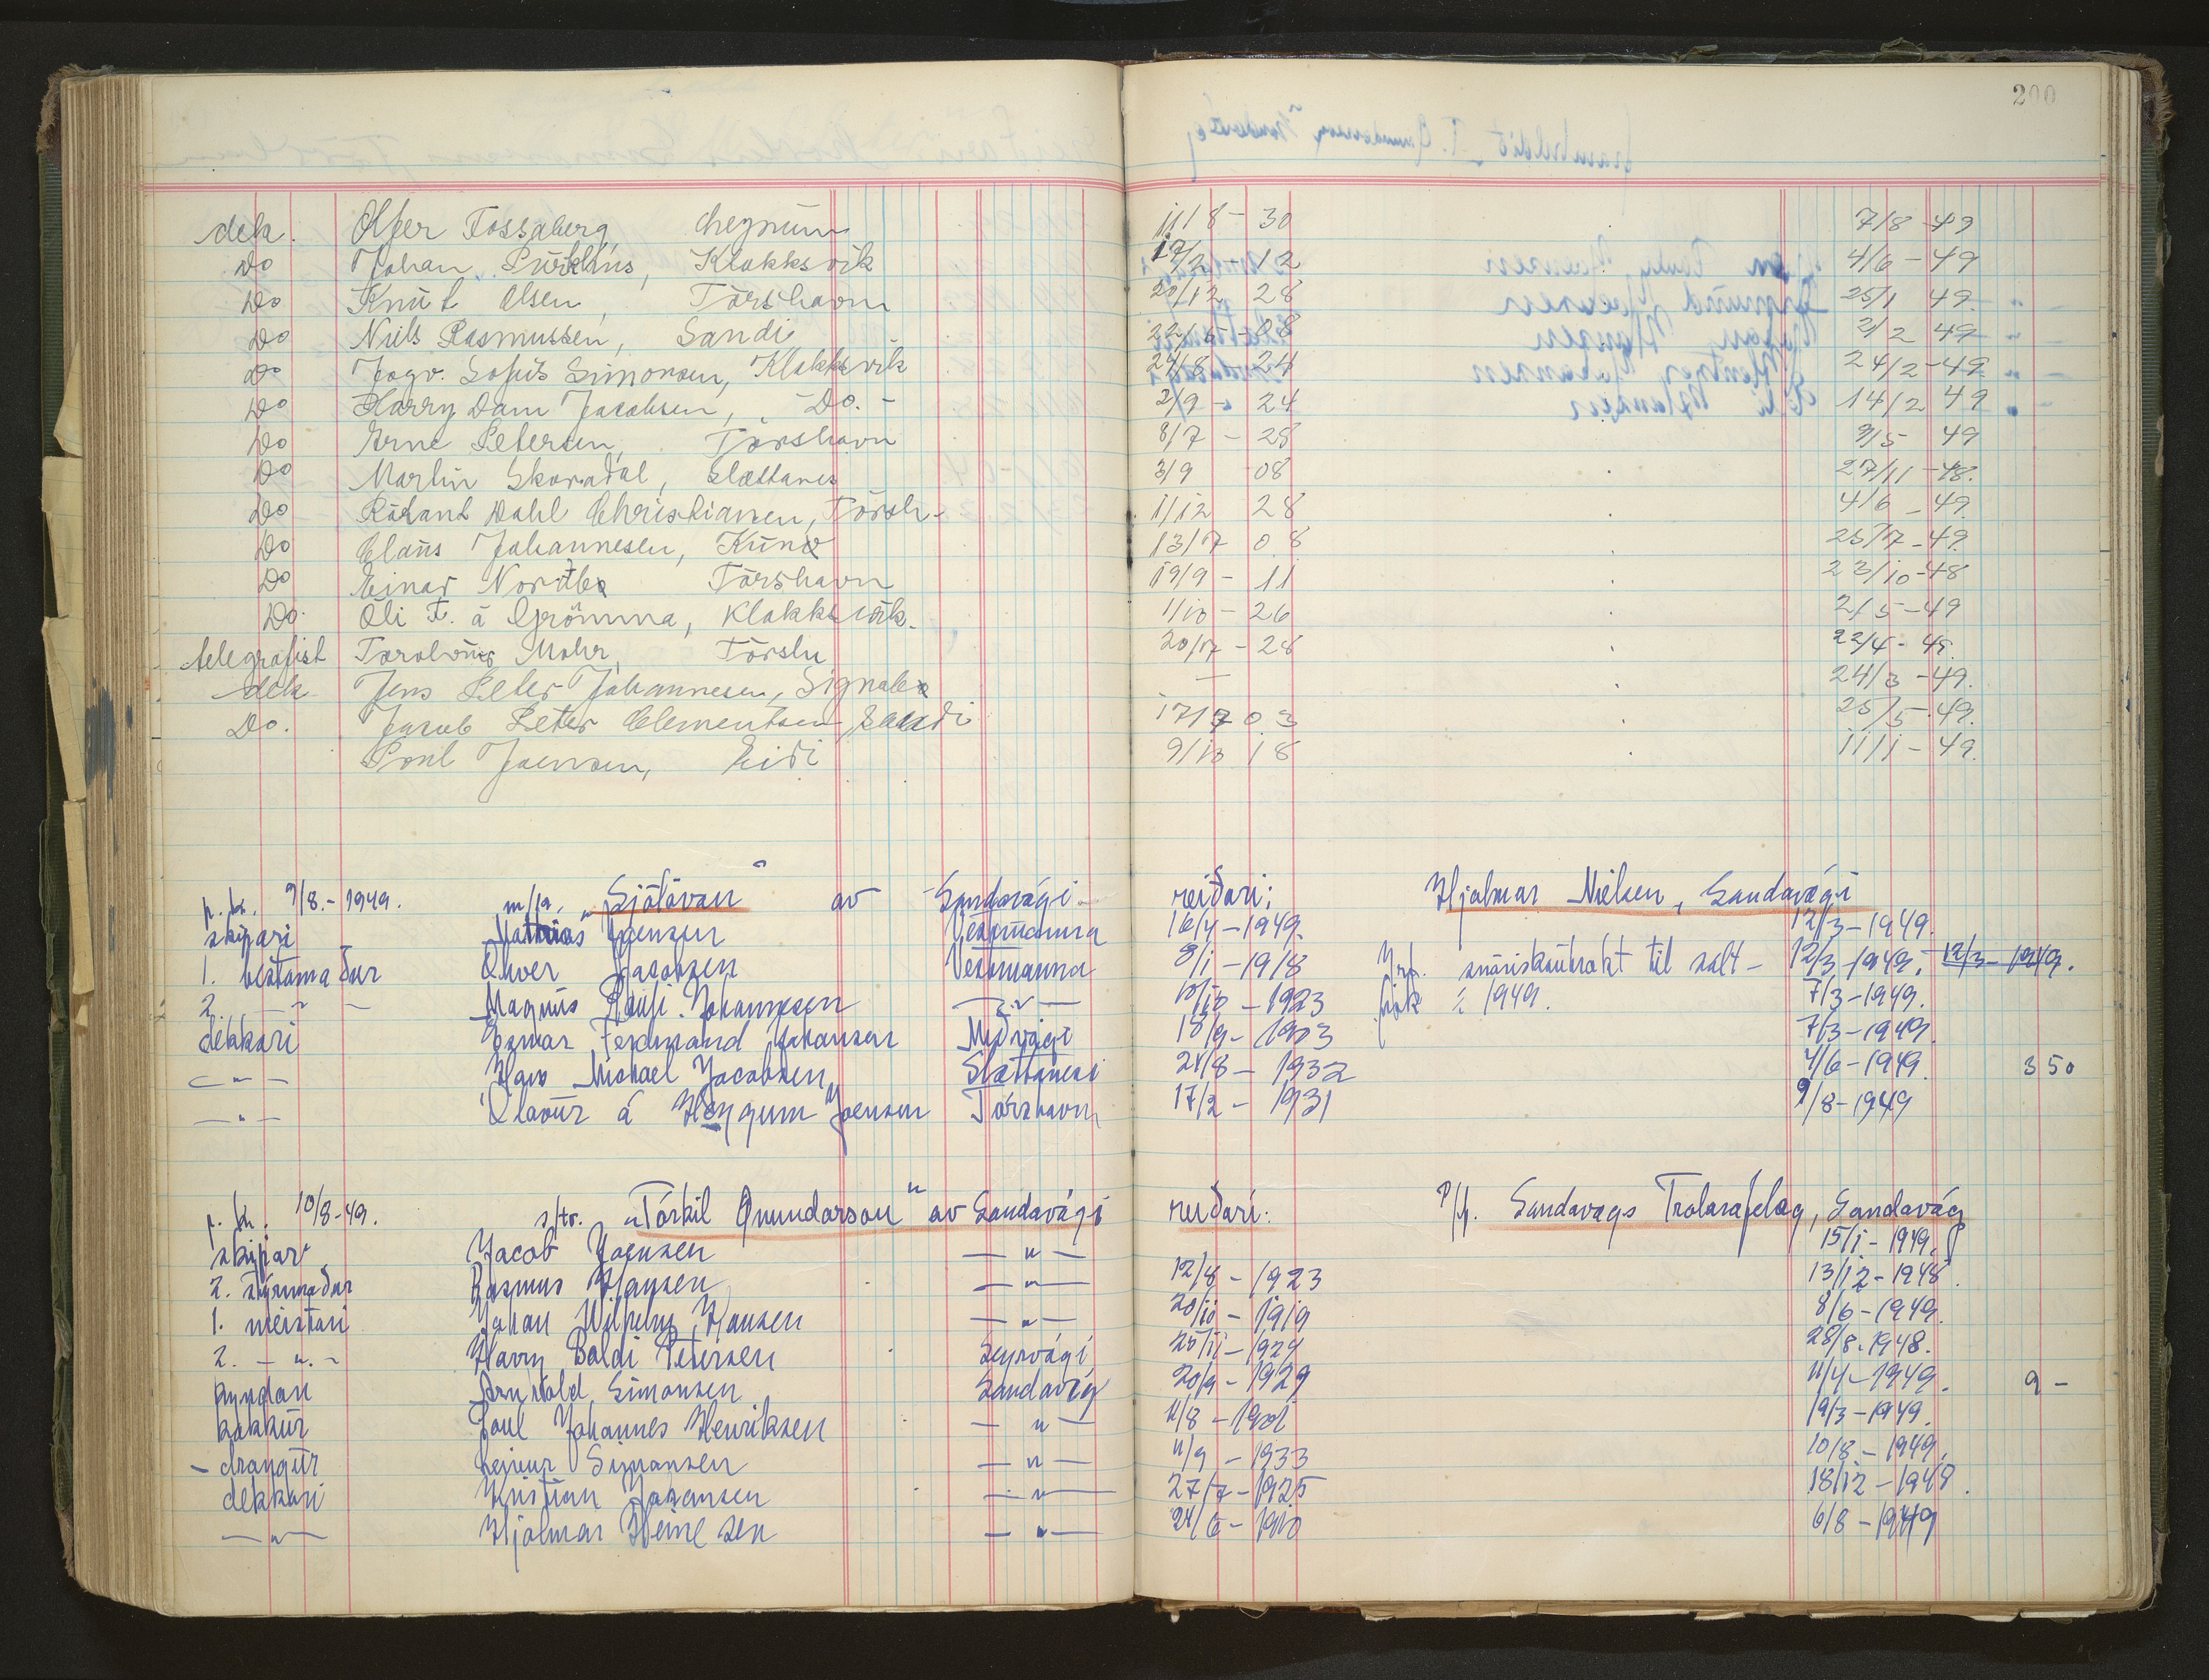 200
dek. Olfer Fossaberg, 11/8 - 30 7/8 - 49
Do Johan Klakksvik 17/2 - 12 4/6 - 49
Do Knút Olsen, Tórshavn 20/12 28 25/1 49.
Do Niels Rasmussen, Sandi 22/5 - 08 2/2 49
Do Jogv. Sofus Simonsen, Klakksvík 24/8 - 24 24/2 - 49
Do Harry Dam Jacobsen, Do. - 2/9 - 24 14/2 49
Do Arne Petersen, Tórshavn 8/7 - 28 9/5 49
Do Martin Skoradal, Slættanes 3/9 08 27/11 - 48.
Do Dahl Christiansen, Tórsh- 1/12 28 4/6 - 49.
Do Claus Johannesen, Kuno 13/7 08 25/7 - 49.
Do Einar Tórshavn 19/9 - 11 23/10 - 48
Do. Óli F. á Grømma, Klakksvík. 1/10 - 26 2/5 - 49
telegrafist Mohr, Tórsh 20/7 - 28 22/4 - 49.
dek Jens Peter Johannesen, Signabø — 24/3 - 49.
Do. Jacub Peter Clementsen, Sandi 17/7 03 25/5 - 49.
Poul Joensen, Eidi 9/10 18 11/1 - 49.
p. k. 9/8. - 1949. m/sk. „Sjólávan" av Sandavági reiðari: Hjalmar Nielsen, Sandavági
skipari Mathias Joensen Vestmanna 16/4 - 1949. 12/3 - 1949.
1. bestamaður Oliver Jacobsen Vestmanna 8/1 - 1918 til salt- 12/3 - 1949. 12/3 - 1949.
2. - " - Magnus Pauli Johannesen — " — 10/10 - 1923 fisk í 1949. 7/3 - 1949.
dekkari Ferdinand Johansen Miðvági 18/9 - 1903 7/3 - 1949
— " — Hans Michael Jacobsen, Slættanesi 21/8 - 1932 4/6 - 1949. 350
— " — Ólavur á Heygum Joensen Tórshavn 17/2 - 1931 9/8 - 1949
p. k. 10/8 - 49. s/tr. „Tórkil Onundarson" av Sandavági reiðari: P/f. Sandavags Trolarafelag, Sandavág
skipari Jacob Joensen — " — 15/1 - 1949.
2. stýrimaður Rasmus Hansen — " — 12/8 - 1923 13/12 - 1948.
1. meistari Johan Wilhelm Hansen — " — 20/10 - 1919 8/6 - 1949.
2. - " - Harry Baldi Petersen Sørvági 25/11 - 1924 28/8. 1948.
Arnold Simonsen Sandavág 20/9 - 1929 11/4 - 1949. 9 -
kokkur Poul Johannes Henriksen — " — 11/8 - 1901 19/3 - 1949.
- drongur Simonsen — " — 11/9 - 1933 10/8 - 1949.
dekkari Kristian Johansen — " — 27/7 - 1925 18/12 - 1948.
— " — Hjalmar Heinesen — " — 24/6 - 1910 6/8 - 1949